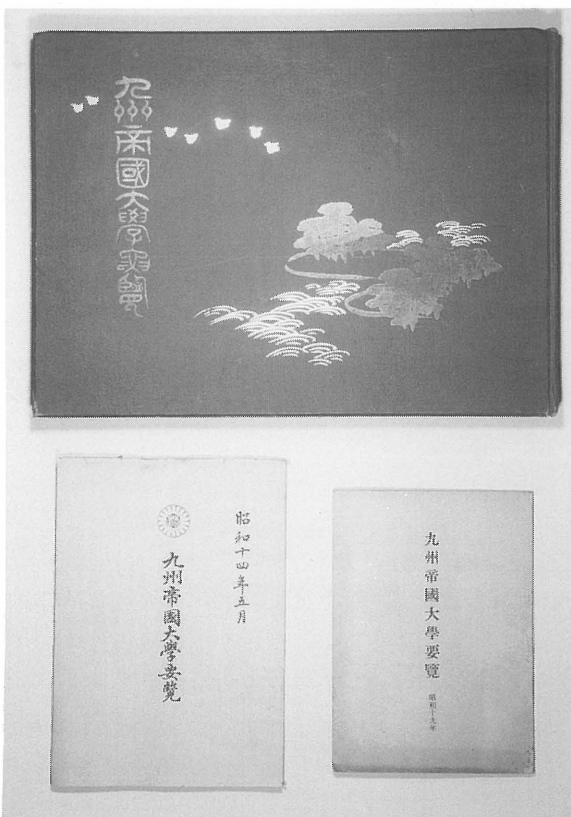 九州帝國大學要覽
昭和十四年五月
九州帝國大學要覽
九州帝國大學要覽
昭和十九年